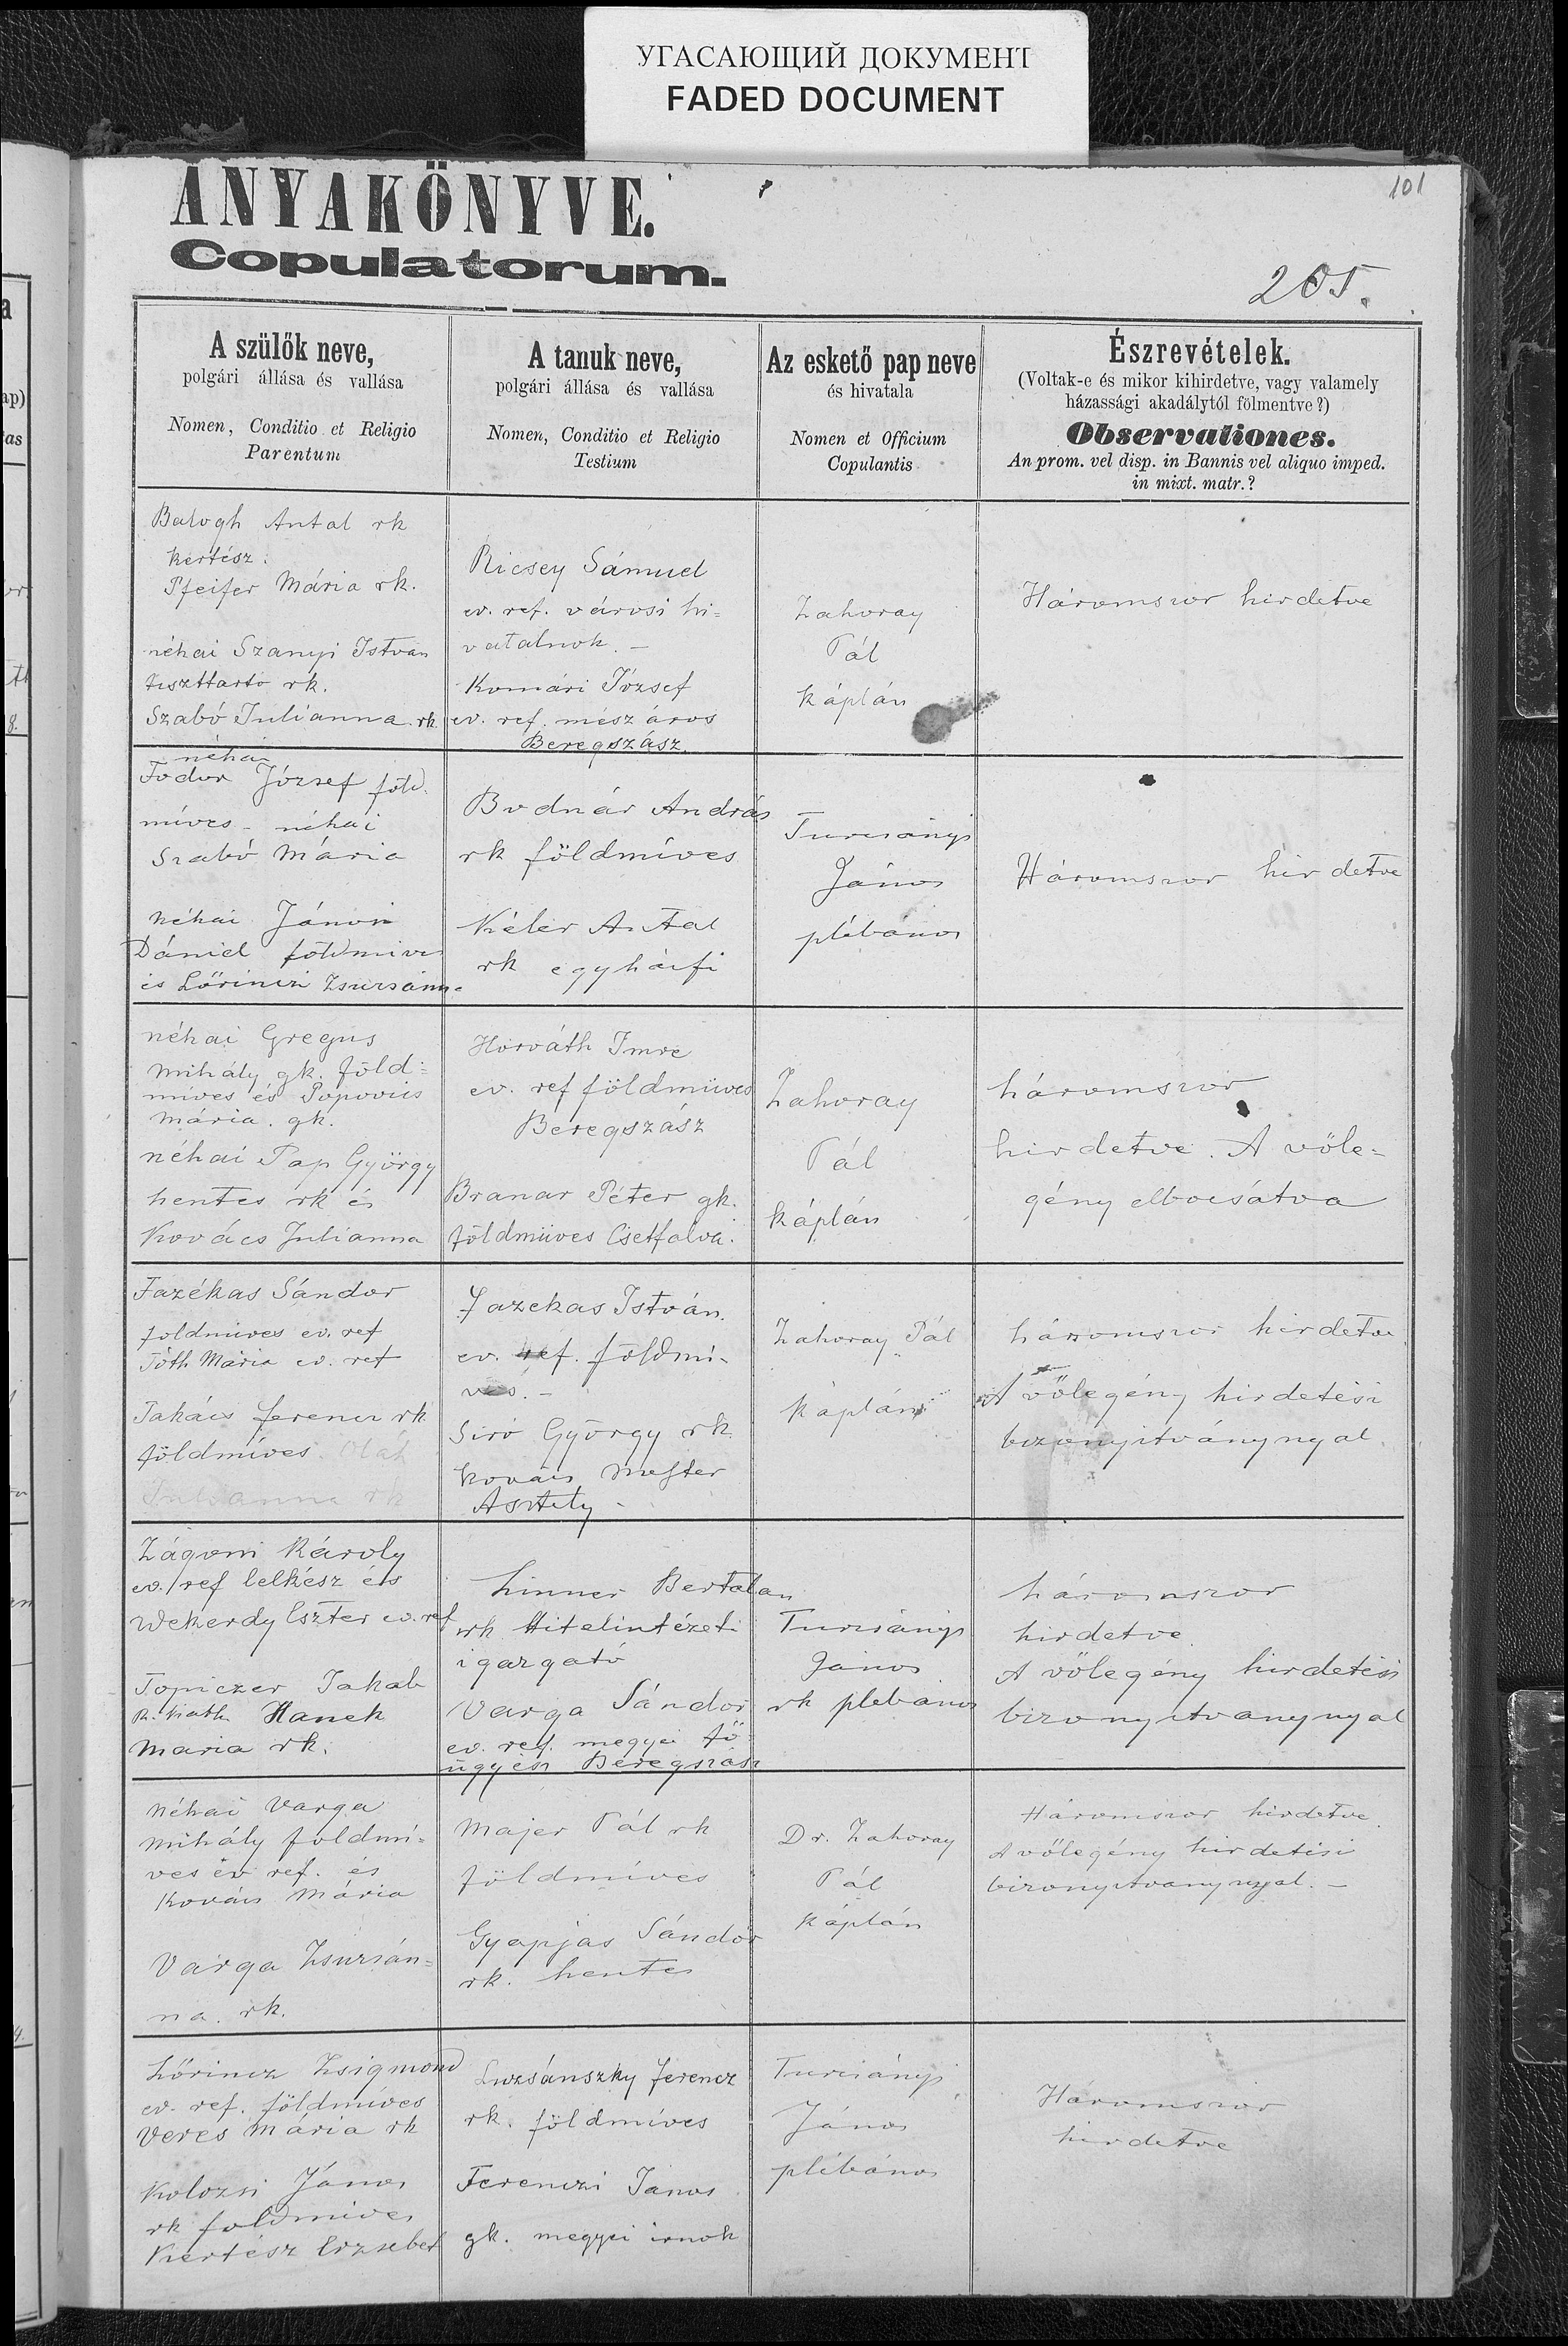 УГАСАЮЩИЙ ДОКУМЕНТ
FADED DOCUMENT
101
ANYAKÖNYVE.
Copulatorum.
205.
A szülők neve,
polgári állása és vallása
Nomen, Conditio et Religio
Parentum
A tanuk neve,
polgári állása és vallása
Nomen, Conditio et Religio
Testium
Az eskető pap neve
és hivatala
Nomen et Officium
Copulantis
Észrevételek.
(Voltak-e és mikor kihirdetve, vagy valamely
házassági akadálytól fölmentve?)
Observationes.
An prom. vel disp. in Bannis vel aliquo imped.
in mixt. matr.?
Balogh Antal rk
kertész.
Pfeifer Mária rk.
néhai Szanyi István
tiszttartó rk.
Szabó Julianna rk.
Ricsey Sámuel
ev. ref. városi hi=
vatalnok. –
Komári József
ev. ref. mészáros
Beregszász.
Zahoray
Pál
káplán
Háromszor hirdetve
néhai
Fodor József föld.
míves – néhai
Szabó Mária
néhai Jánosi
Dániel földmives
és Lőrinczi Zsuzsánna
Bodnár András
rk földmíves
Kéler Antal
rk egyháifi
Turcsányi
János
plébános
Háromszor hirdetve
néhai Gregus
Mihály gk. föld=
míves és Popovics
Mária. gk.
néhai Pap György
hentes rk és
Kovács Julianna
Horváth Imre
ev. ref földmüves
Beregszász
Branar Péter gk.
földmüves Csetfalva.
Zahoray
Pál
káplán
háromszor
hirdetve. A vőle=
gény elbocsátva
Fazékas Sándor
földmüves ev. ref
Tóth Mária ev. ref
Takács Ferencz rk
földmíves Oláh
Julianna rk
Fazekas István.
ev. ref. földmi-
ves. –
Siró György rk.
kovács mester
Asztely –
Zahoray Pál
káplán
háromszor hirdetve
A vőlegény hirdetési
bizonyítványnyal
Zágoni Károly
ev. ref lelkész és
Wekerdy Eszter ev. ref
Topiczer Jakab
R. Kath. Hanek
Maria rk.
Linner Bertalan
rk Hitelintézeti
igazgató
Varga Sándor
ev. ref. megyei fő
ügyész Beregszász
Turcsányi
János
rk plebános
háromszor
hirdetve.
A vőlegény hirdetési
bizonyitványnyal
néhai Varga
Mihály földmi=
ves ev ref. és
Kovács Mária
Varga Zsuzsán=
na. rk.
Majer Pál rk
földmíves
Gyapjas Sándor
rk. hentes
Dr. Zahoray
Pál
káplán
Háromszor hirdetve.
A vőlegény hirdetési
bizonyitványnyal. –
Lőrincz Zsigmond
ev. ref. földmíves
Veres Mária rk
Kolozsi János
rk földmíves
Kertész Erzsébet
Luzsánszky Ferencz
rk. földmíves
Ferenczi János
gk. megyei irnok
Turcsányi
János
plébános
Háromszor
hirdetve